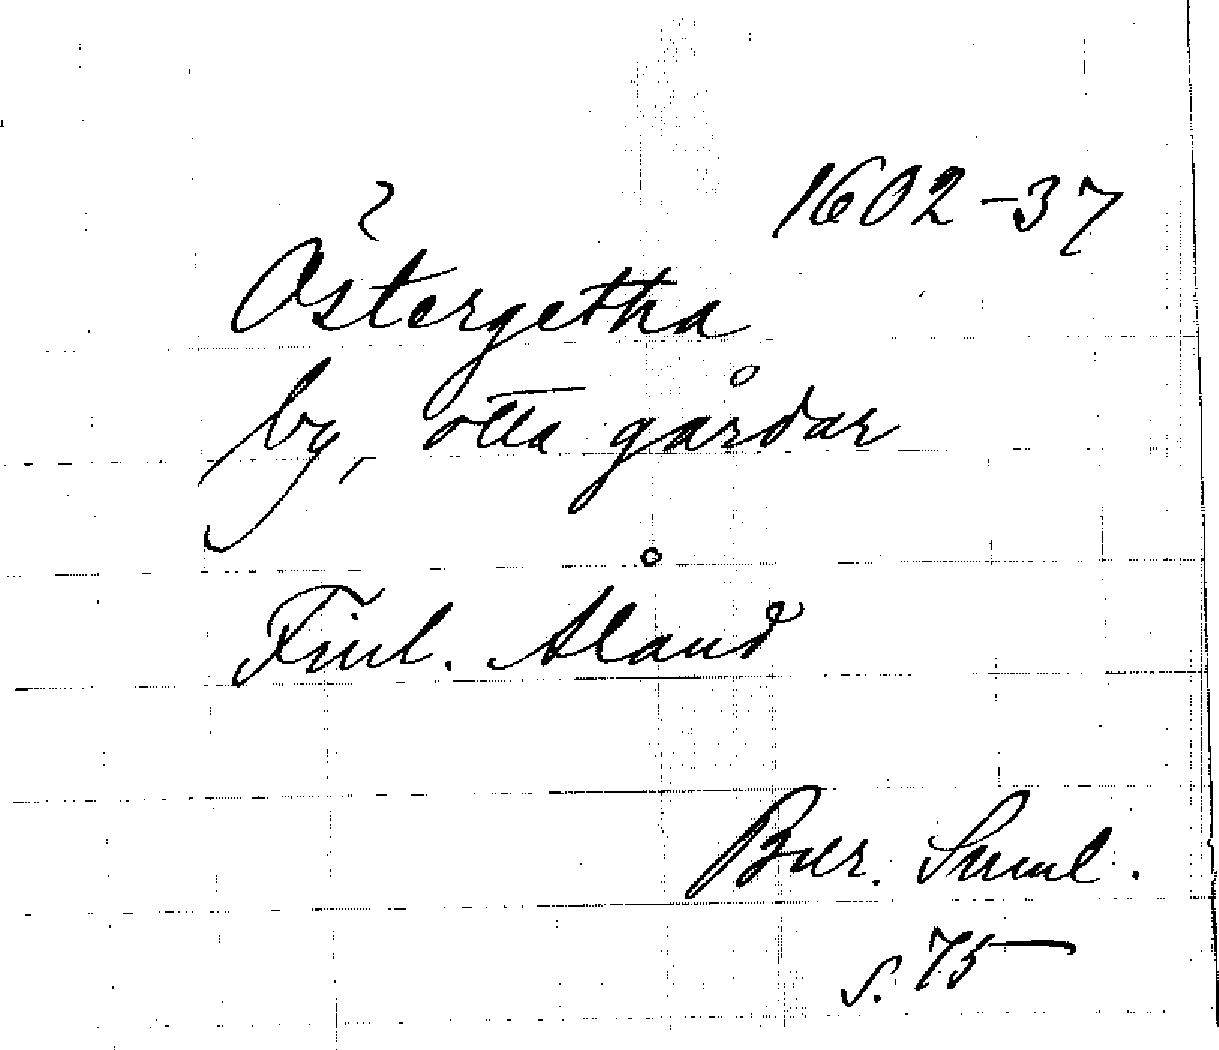 1602-37
Östergetha
by, otta gårdar
Finl. Åland
Bur. Saml.
s. 75